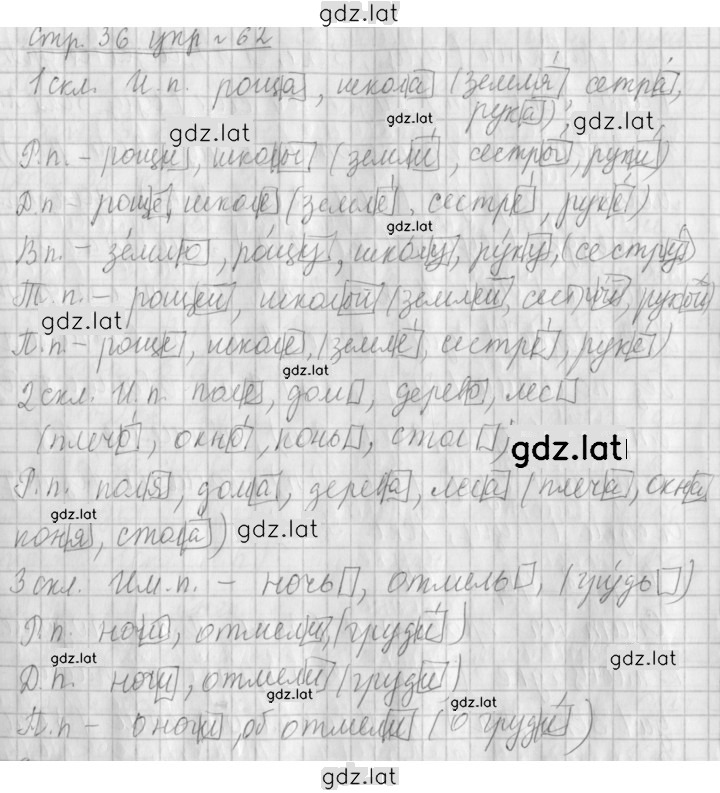 gdz.lat
Стр. 36 упр № 62
1 скл. И.п. роща, школа (земля, сетра,
gdz.lat
рука);
gdz.lat
gdz.lat
Р.п. - рощи, школы, (земли, сестры, руки)
Д.п - роще, школе (земле, сестре, руке)
gdz.lat
В.п. - землю, рощу, школу, руку, (сестру)
Т.п. - рощей, школой (землей, рукой)
gdz.lat
П.п. - роще, школе, (земле, сестре, руке)
gdz.lat
2 скл. И.п. поле, дом, дерево, лес
(плечо, окно, конь, стол);
gdz.lat
Р.п. поля, дома, дерева, леса (плеча, окна
gdz.lat
коня, стола)
gdz.lat
3 скл. Им.п. - ночь, отмель, (грудь)
Р.п. ночи, отмели, (груди)
gdz.lat
gdz.lat
Д.п. ночи, отмели (груди)
gdz.lat
gdz.lat
П.п - о ночи, об отмели (о груди)
gdz.lat